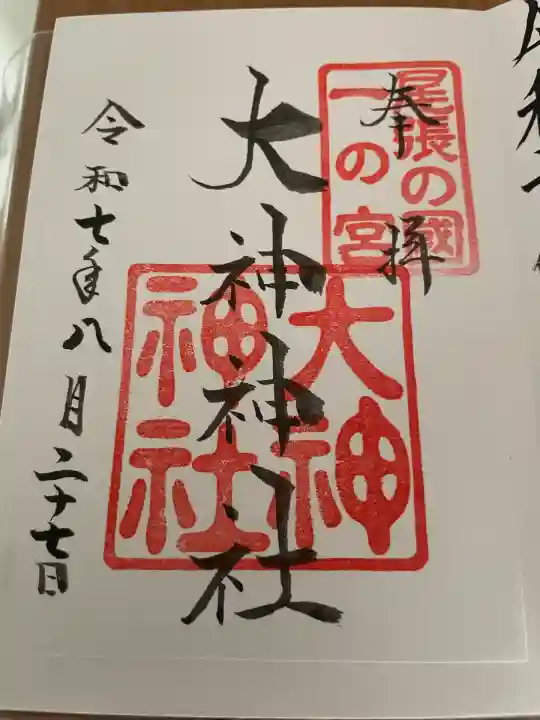 奉拝
尾張の國
一の宮
大神神社
大神
神社
令和七年八月二十七日